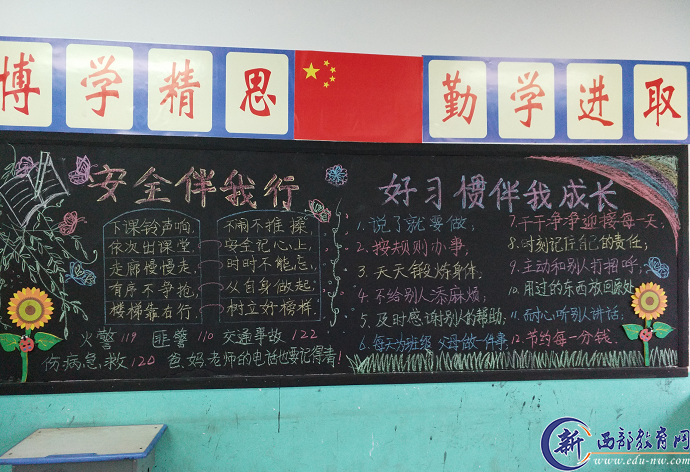 博学精思
勤学进取
安全伴我行
下课铃声响,
依次出课堂
走廊慢慢走,
有序不争抢,
楼梯靠右行.
不闹不推搡
安全记心上,
时时不能忘,
从自身做起,
树立好榜样
火警119 匪警110 交通事故122
伤病急救120 爸、妈、老师的电话也要记得着!
好习惯伴我成长
1.说了就要做,
2.按规则办事,
3.天天锻炼身体,
4.不给别人添麻烦,
5.及时感谢别人的帮助,
6.每天为班级 父母做一件事
7.干干净净迎接每一天;
8.时刻记住自己的责任;
9.主动和别人打招呼,
10.用过的东西放回原处
11.耐心听别人讲话.
12.节约每一分钱.
新 西部教育网
www.edu-nw.com